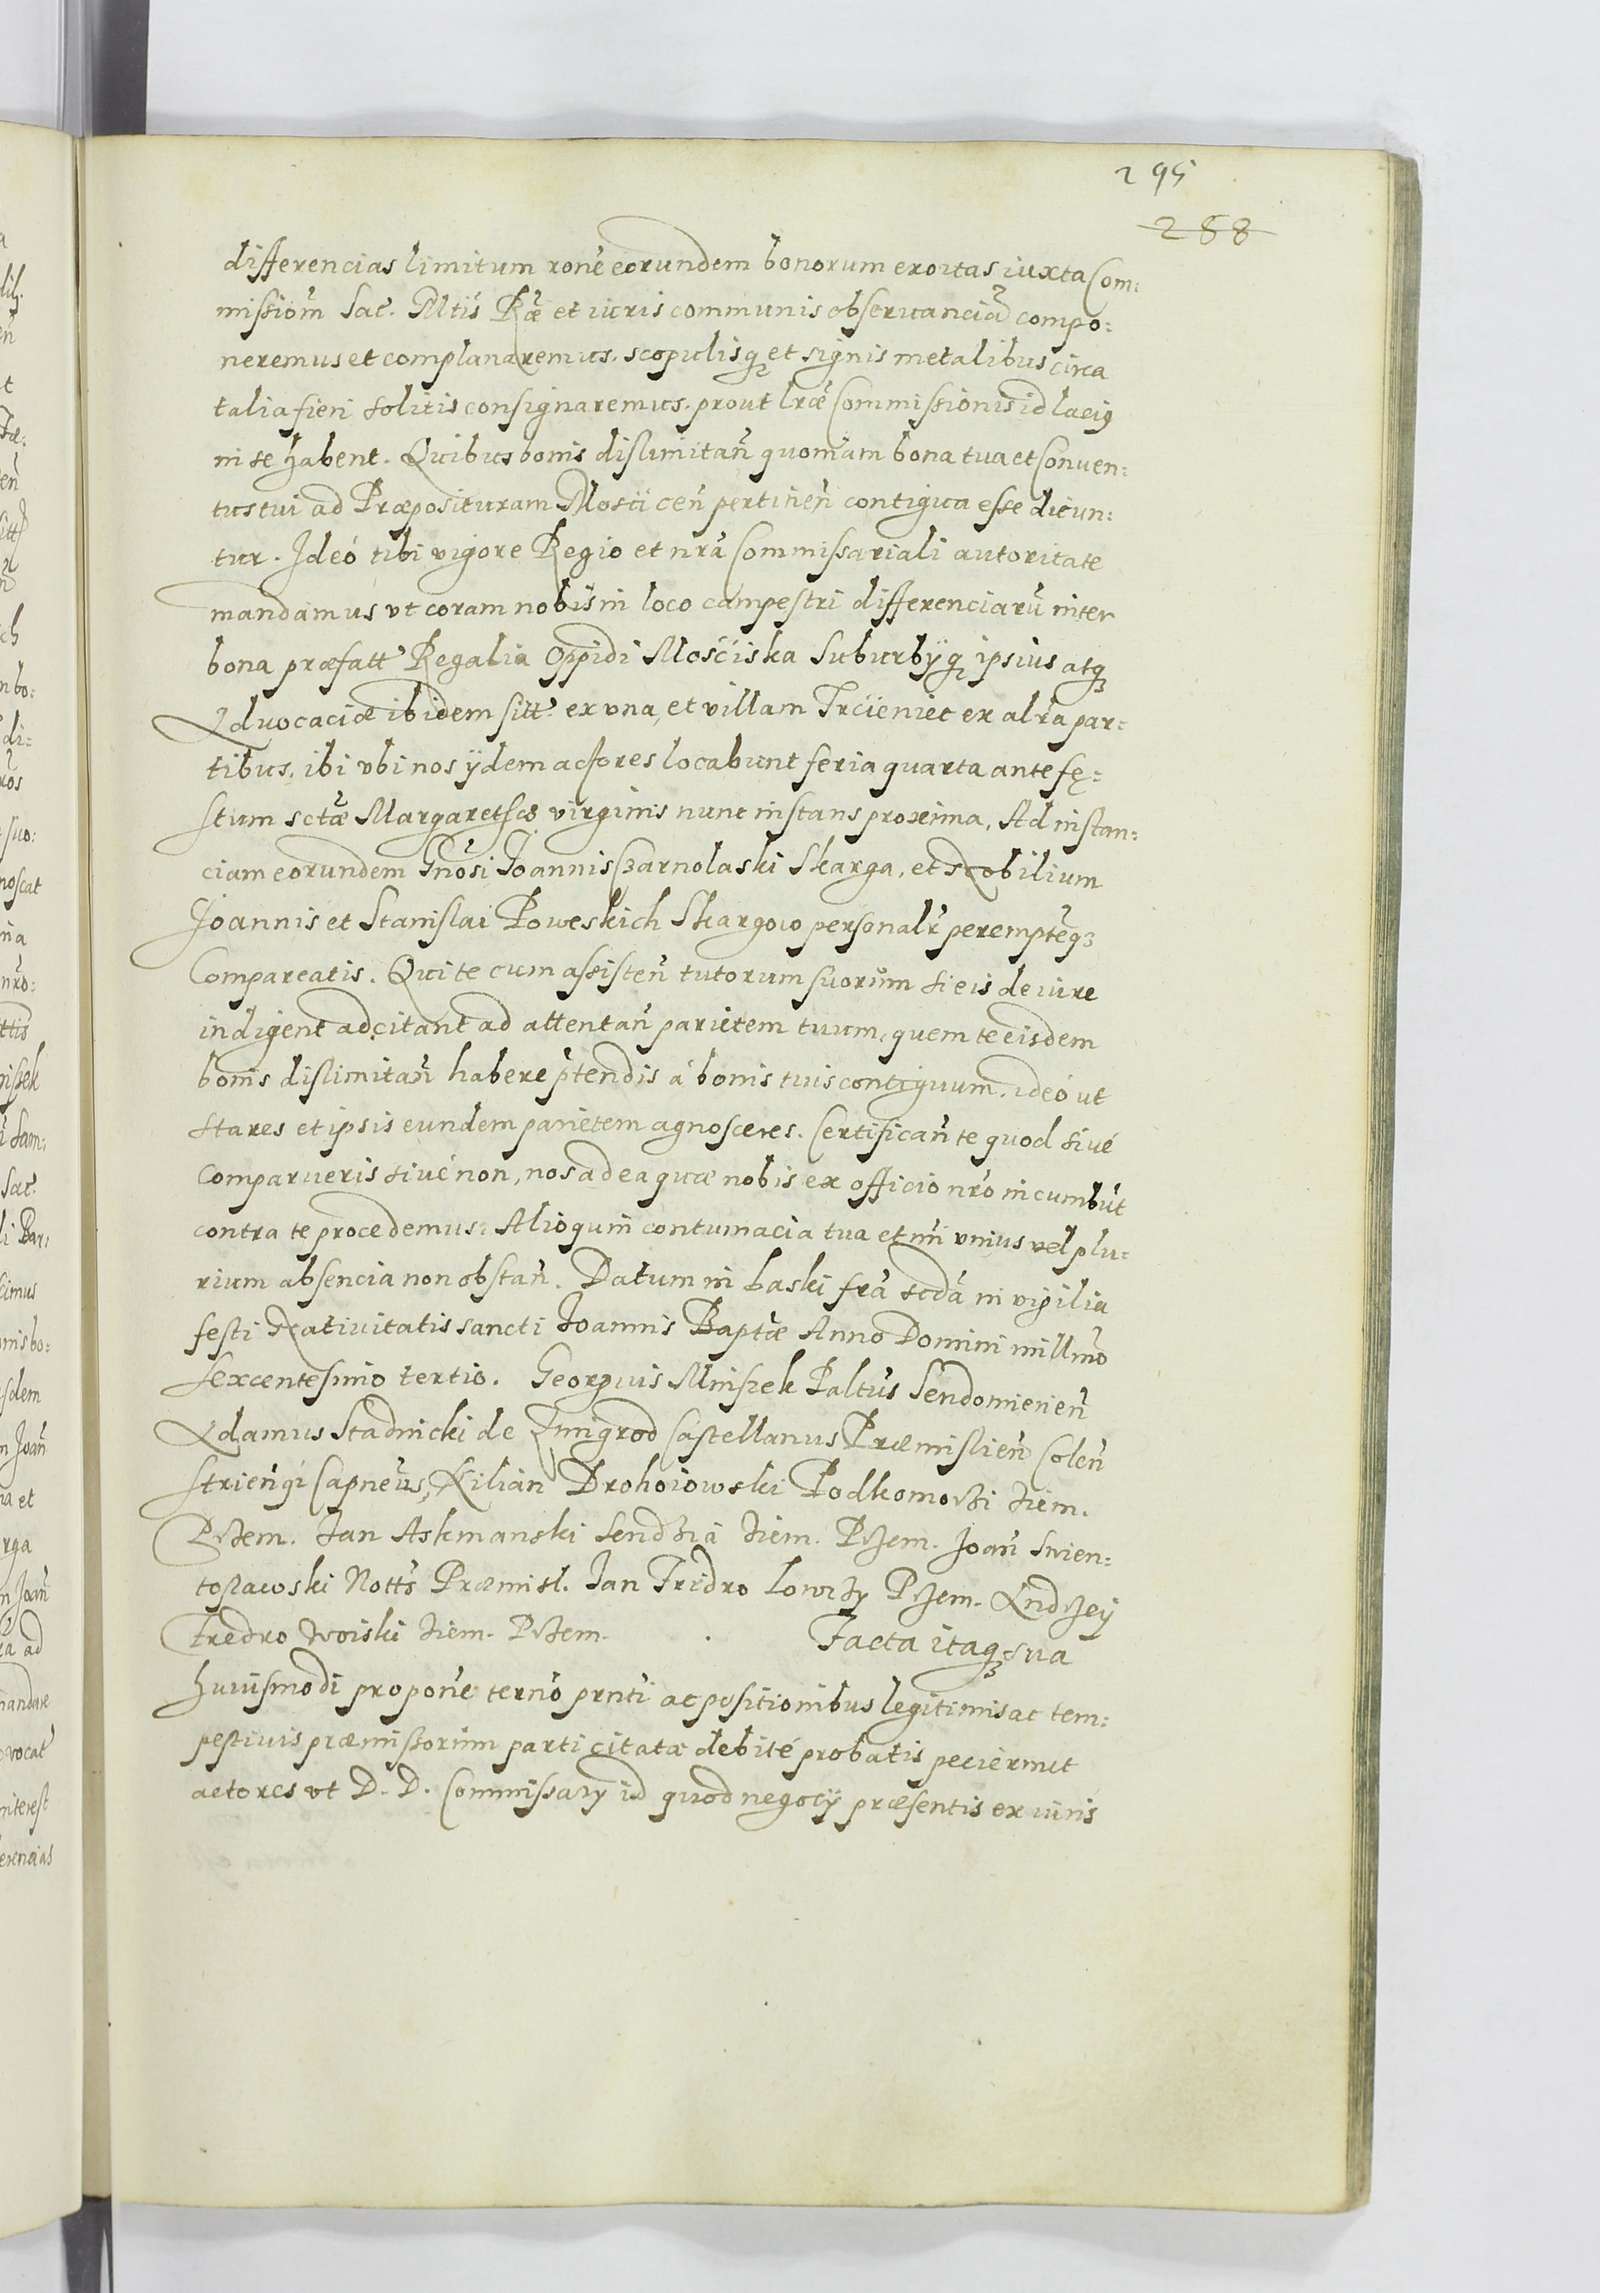 295
288
differencias limitum rone eorundem bonorum exortas iuxta Com:
missiom Sac. Mtis Ræ et iuris communis obseruancia compo:
neremus et complanaremus. scopulisq et signis metalibus circa
talia fieri solitis consignaremus. prout lræ Commissionis id lacius
in se habent. Quibus bonis dislimitan quoniam bona tua et Conuen:
tus tui ad Præposituram Moscicen pertinen contigua esse dicun:
tur. Ideó tibi vigore Regio et nra Commissariali autoritate
mandamus vt coram nobis in loco campestri differenciaru inter
bona præfatt Regalia Oppidi Mościska Suburbÿq ipsius atq
Aduocaciæ ibidem sitt ex vna, et villam Trcieniec ex alra par:
tibus. ibi vbi nos ÿdem actores locabunt feria quarta ante fę:
stum sctæ Margarethæ virginis nunc instans proxima. Ad instan:
ciam eorundem Gnosi Joannis Czarnolaski Skarga, et Nobilium
Joannis et Stanislai Poweskich Skargow personalr perempteq
Compareatis. Qui te cum assisten tutorum suorum si eis de iure
indigent adcitant ad attentan parietem tuum, quem te eisdem
bonis dislimitan habere ptendis á bonis tuis contiguum. ideó ut
stares et ipsis eundem parietem agnosceres. Certifican te quod siué
comparueris siué non, nos ad ea quæ nobis ex officio nro incumbut
contra te procedemus. Alioquin contumacia tua et nri vnius vel plu:
rium absencia non obstan. Datum in Laski fra scda in vigilia
festi Natiuitatis sancti Joannis Baptæ Anno Domini millmo
sexcentesimo tertio. Georgius Mniszek Paltus Sendomirien
Adamus Stadnicki de Zmigrod Castellanus Præmislien Colen
Striengi Capneus, Kilian Drohoiowski Podkomorzi ziem.
Przem. Jan Askmanski Sendzia ziem. Przem. Joan Swien:
toslawski Notts Præmisl. Jan Fridro Lowczy Przem. Andrzey
Fredro Woiski ziem. Przem. Facta itaq sua
huiusmodi propone terno prnti ac positionibus legitimis ac tem:
pestiuis præmissorum parti citatæ debité probatis pecierunt
actores vt D. D. Commissary id quod negocÿ præsentis ex iuris